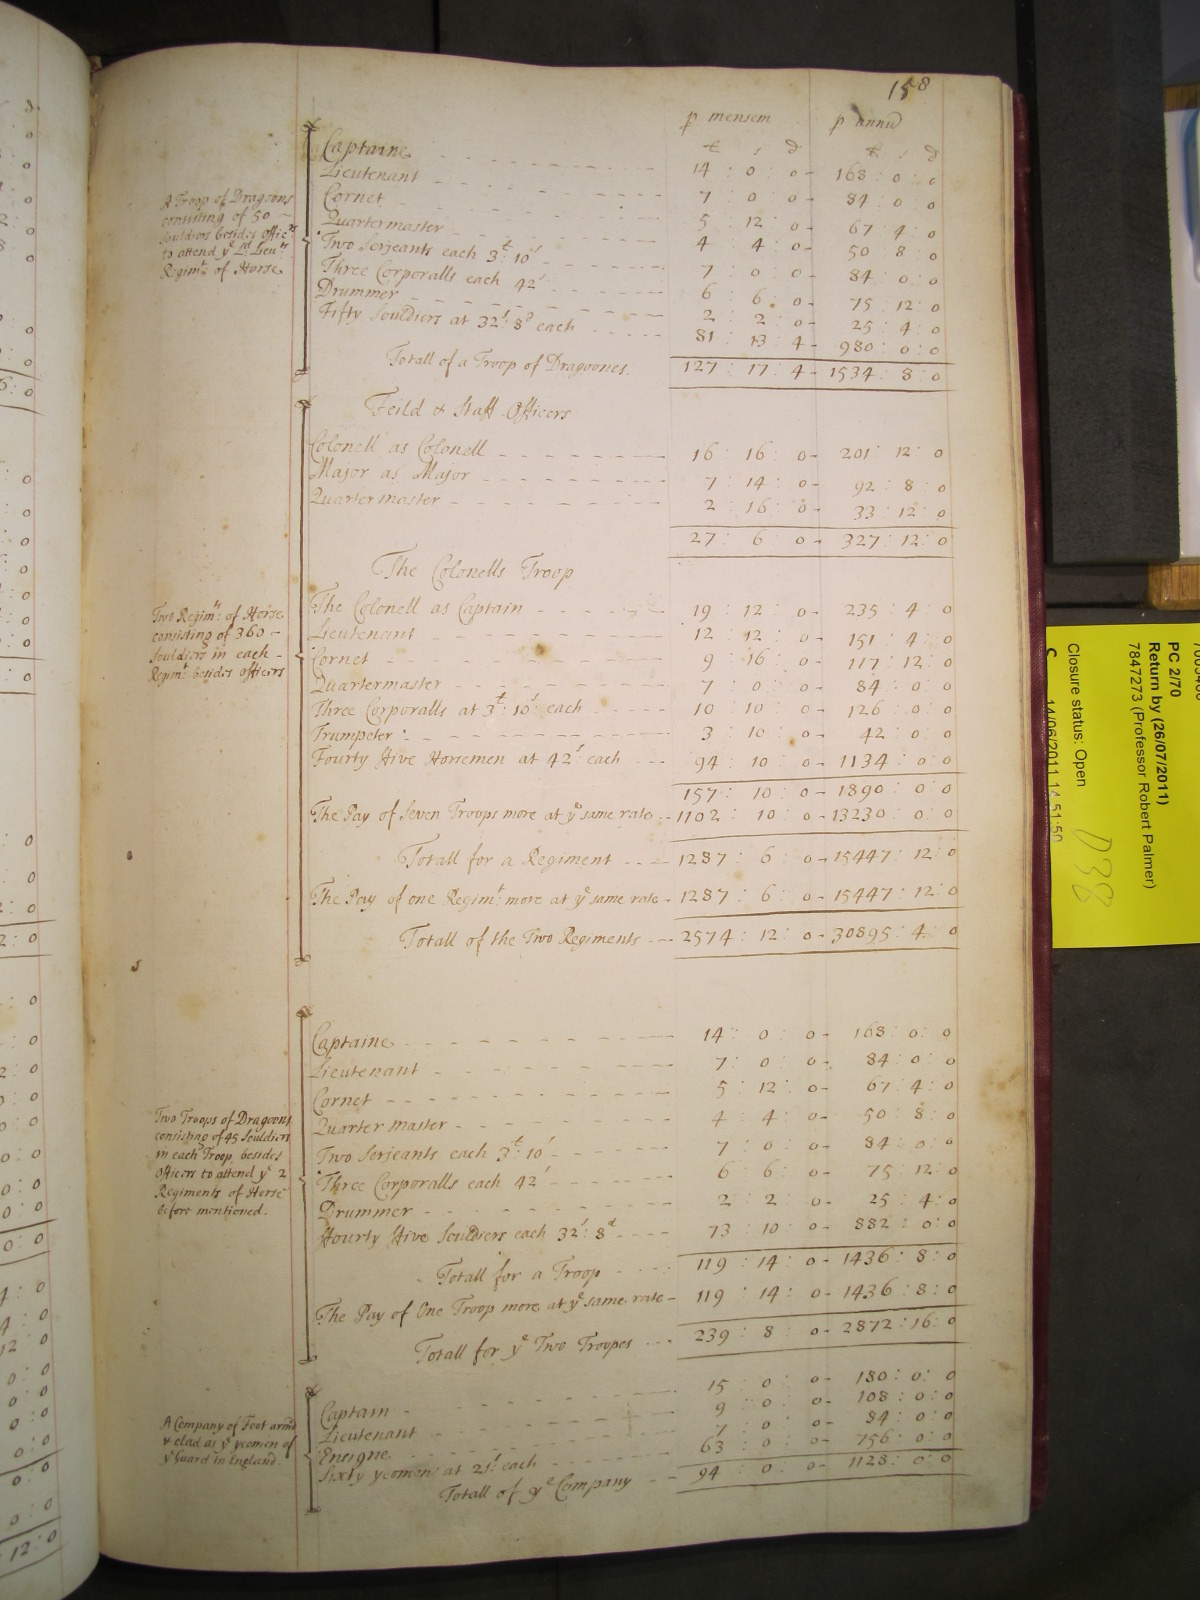 158
p mensem p annũ
£ s d £ s d
A Troop of Dragoons
consisting of 50 –
souldiers besides Office.rs
to attend ye Ld. Lieu.ts
Regim.t of Horse.
Captaine 14 : 0 : 0 - 168 : 0 : 0
Lieutenant 7 : 0 : 0 - 84 : 0 : 0
Cornet 5 : 12 : 0 - 67 : 4 : 0
Quartermaster 4 : 4 : 0 - 50 : 8 : 0
Two Serjeants each 3£: 10s 7 : 0 : 0 - 84 : 0 : 0
Three Corporalls each 42s 6 : 6 : 0 - 75 : 12 : 0
Drummer 2 : 2 : 0 - 25 : 4 : 0
Fifty Souldiers at 32s: 8d each 81 : 13 : 4 - 980 : 0 : 0
Totall of a Troop of Dragoones. 127 : 17 : 4 - 1534 : 8 : 0
Feild & Staff Officers
Two Regim.ts of Horse
consisting of 360 –
souldiers in each –
Regim.t besides officers
Colonell as Colonell 16 : 16 : 0 - 201 : 12 : 0
Major as Major 7 : 14 : 0 - 92 : 8 : 0
Quartermaster 2 : 16 : 0 - 33 : 12 : 0
27 : 6 : 0 - 327 : 12 : 0
The Colonells Troop
The Colonell as Captain 19 : 12 : 0 - 235 : 4 : 0
Lieutenant 12 : 12 : 0 - 151 : 4 : 0
Cornet 9 : 16 : 0 - 117 : 12 : 0
Quartermaster 7 : 0 : 0 - 84 : 0 : 0
Three Corporalls at 3£: 10s: each 10 : 10 : 0 - 126 : 0 : 0
Trumpeter 3 : 10 : 0 - 42 : 0 : 0
Fourty ffive Horsemen at 42s each 94 : 10 : 0 - 1134 : 0 : 0
157 : 10 : 0 - 1890 : 0 : 0
The Pay of Seven Troops more at ye same rate 1102 : 10 : 0 - 13230 : 0 : 0
Totall for a Regiment 1287 : 6 : 0 - 15447 : 12 : 0
The Pay of one Regim.t more at ye same rate 1287 : 6 : 0 - 15447 : 12 : 0
Totall of the Two Regiments 2574 : 12 : 0 - 30895 : 4 : 0
Two Troops of Dragoons
consisting of 45 Souldiers
in each Troop, besides
Officers to attend ye 2
Regiments of Horse
before mentioned.
Captaine 14 : 0 : 0 - 168 : 0 : 0
Lieutenant 7 : 0 : 0 - 84 : 0 : 0
Cornet 5 : 12 : 0 - 67 : 4 : 0
Quarter master 4 : 4 : 0 - 50 : 8 : 0
Two Serjeants each 3£: 10s 7 : 0 : 0 - 84 : 0 : 0
Three Corporalls each 42s 6 : 6 : 0 - 75 : 12 : 0
Drummer 2 : 2 : 0 - 25 : 4 : 0
ffourty ffive Souldiers each 32s: 8d 73 : 10 : 0 - 882 : 0 : 0
Totall for a Troop 119 : 14 : 0 - 1436 : 8 : 0
The Pay of One Troop more at ye same rate 119 : 14 : 0 - 1436 : 8 : 0
Totall for ye Two Troopes 239 : 8 : 0 - 2872 : 16 : 0
A Company of Foot armd
& clad as ye yeomen of
ye Guard in England.
Captain 15 : 0 : 0 - 180 : 0 : 0
Lieutenant 9 : 0 : 0 - 108 : 0 : 0
Ensigne 7 : 0 : 0 - 84 : 0 : 0
Sixty yeomen at 21s each 63 : 0 : 0 - 756 : 0 : 0
Totall of ye Company 94 : 0 : 0 - 1128 : 0 : 0
PC 2/70
Return by (26/07/2011)
7847273 (Professor Robert Palmer)
D38
Closure status: Open
C 14/06/2011 14:51:50